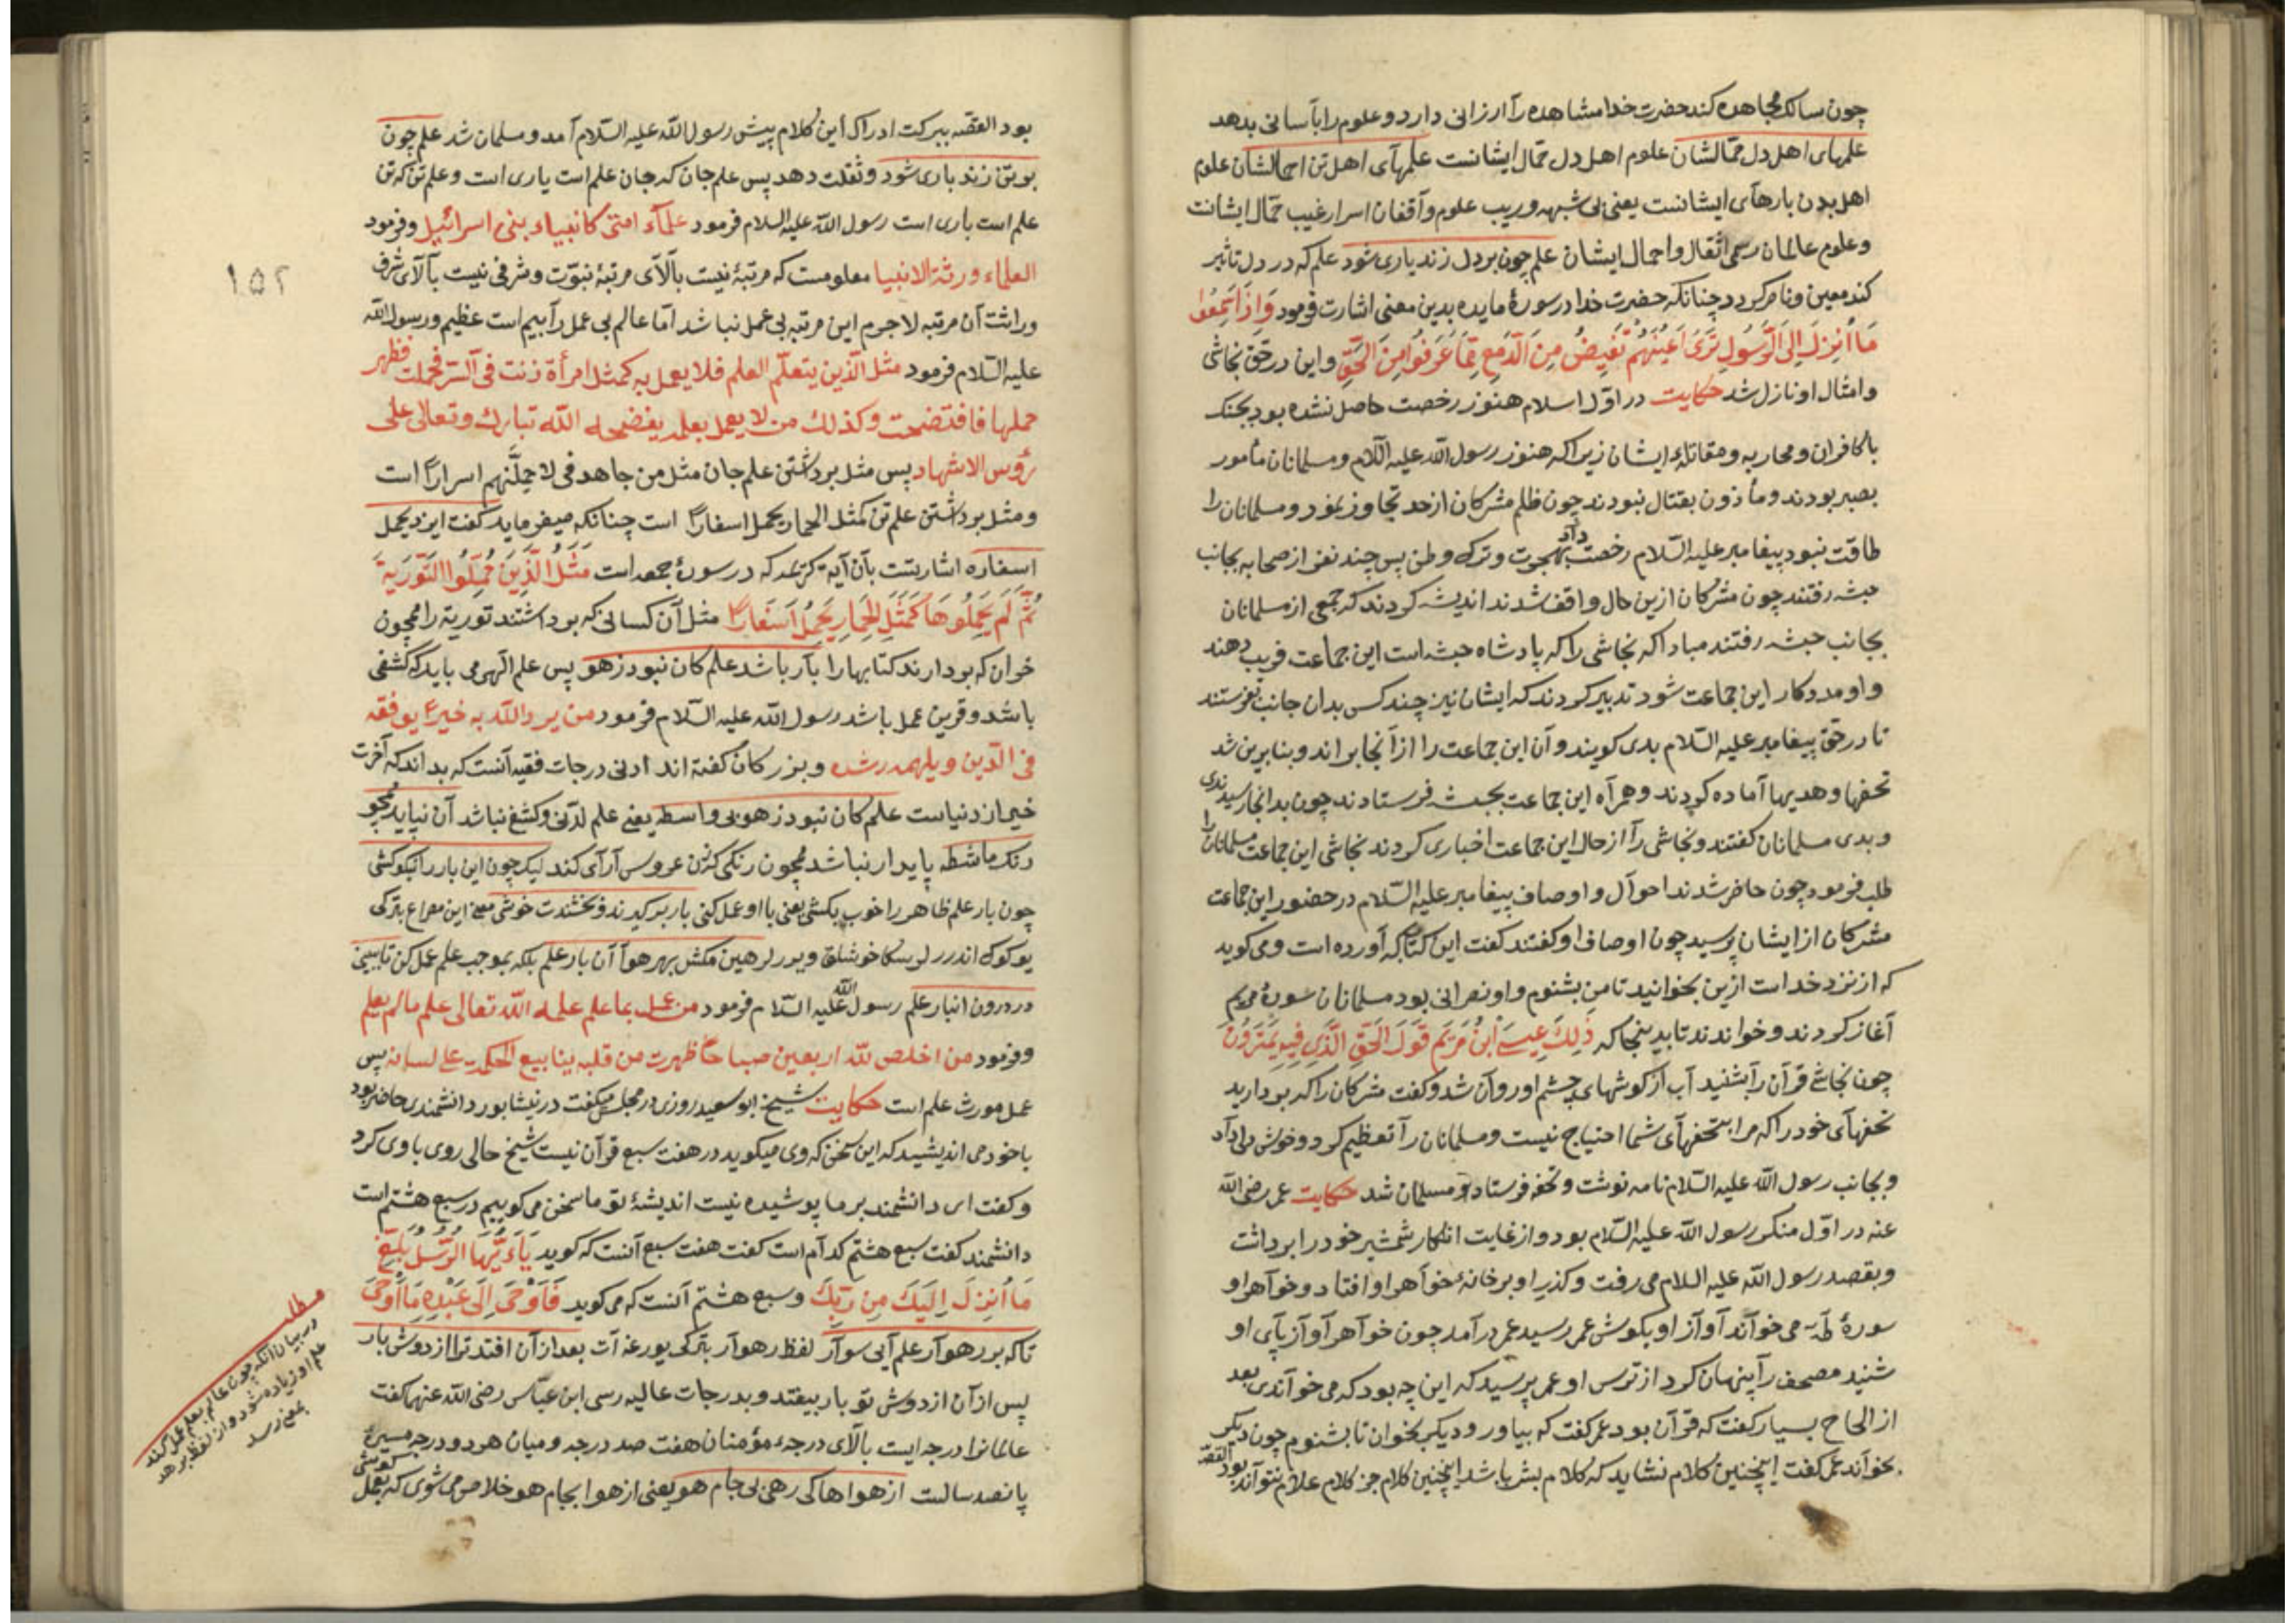 چون سالک مجاهده کند حضرت خدا مشاهده را ارزانی دارد و علوم را بآسانی بدهد
علمهای اهل دل حمّالشان علوم اهل دل حمّال ایشانست علمهای اهل تن احمالشان علوم
اهل بدن بارهای ایشانست یعنی بی شبهه و ریب علوم واقفان اسرار غیب حمّال ایشانست
و علوم عالمان رسمی اثقال و احمال ایشان علم چون بر دل زند یاری شود علم که در دل تاثیر
کند معین و ناصر کردد چنانکه حضرت خدا در سورهٔ مایده بدین معنی اشارت فرمود وَاِذَا سَمِعُوا
مَا اُنْزِلَ اِلَی الرَّسُولِ تَرَی اَعْیُنَهُمْ تَفِیضُ مِنَ الدَّمْعِ مِمَّا عَرَفُوا مِنَ الْحَقِّ و این در حق نجاشی
و امثال او نازل شد حکایت در اوّل اسلام هنوز رخصت حاصل نشده بود بجنک
با کافران و محاربه و مقاتلهٔ ایشان زیراکه هنوز رسول الله علیه السّلام و مسلمانان مأمور
بصبر بودند و مأذون بقتال نبودند چون ظلم مشرکان از حد تجاوز نمود و مسلمانان را
طاقت نبود پیغامبر علیه السّلام رخصت داد بهجرت و ترک وطن پس چند نفر از صحابه بجانب
حبشه رفتند چون مشرکان ازین حال واقف شدند اندیشه کردند که جمعی از مسلمانان
بجانب حبشه رفتند مبادا که نجاشی را که پادشاه حبشه است این جماعت فریب دهند
و او مددکار این جماعت شود تدبیر کردند که ایشان نیز چند کس بدان جانب بفرستند
تا در حق پیغامبر علیه السّلام بدی کویند و آن این جماعت را از آنجا براند و بنابرین شد
تحفها و هدیها آماده کردند و همراه این جماعت بحبشه فرستادند چون بدانجا رسیدند
و بدی مسلمانان کفتند و نجاشی را از حال این جماعت اخباری کردند نجاشی این جماعت مسلمانان را
طلب فرمود چون حاضر شدند احوال و اوصاف پیغامبر علیه السّلام در حضور این جماعت
مشرکان از ایشان پرسید چون اوصاف او کفتند کفت این کتاب که آورده است و می کوید
که از نزد خداست ازین بخوانید تا من بشنوم و او نصرانی بود مسلمانان سورهٔ مریم
آغاز کردند و خواندند تا بدینجا که ذَلِكَ عِیسَی ابْنُ مَرْیَمَ قَوْلَ الْحَقِّ الَّذِی فِیهِ یَمْتَرُونَ
چون نجاشی قرآن را شنید آب از کوشهای چشم او روان شد و کفت مشرکان را که بردارید
تحفهای خود را که مرا بتحفهای شما احتیاج نیست و مسلمانان را تعظیم کرد و خوش دلی داد
و بجانب رسول الله علیه السّلام نامه نوشت و تحفه فرستاد و مسلمان شد حکایت عمر رضی الله
عنه در اوّل منکر رسول الله علیه السّلام بود و از غایت انکار شمشیر خود را برداشت
و بقصد رسول الله علیه السلام می رفت و کذر او بر خانهٔ خواهر او افتاد و خواهر او
سورهٔ طه می خواند آواز او بکوش عمر رسید عمر درآمد چون خواهر آواز پای او
شنید مصحف را پنهان کرد از ترس او عمر پرسید که این چه بود که می خواندی بعد
از الحاح بسیار کفت که قرآن بود عمر کفت که بیاور و دیکر بخوان تا بشنوم چون دیکر
بخواند عمر کفت اینچنین کلام نشاید که کلام بشر باشد اینچنین کلام جز کلام علّام نتواند بود القصّه
بود القصّه ببرکت ادراک این کلام پیش رسول الله علیه السّلام آمد و مسلمان شد علم چون
بر تن زند باری شود و ثقلت دهد پس علم جان که جان علم است یاری است و علم تن که تن
علم است باری است رسول الله علیه السلام فرمود علماء امتی کانبیاء بنی اسرائیل و فرمود
العلماء ورثة الانبیا معلومست که مرتبهٔ نیست بالای مرتبهٔ نبوّت و شرفی نیست بالای شرف
وراثت آن مرتبه لاجرم این مرتبه بی عمل نباشد امّا عالم بی عمل را بیم است عظیم و رسول الله
علیه السّلام فرمود مثل الّذین یتعلّم العلم فلا یعمل به کمثل امرأة زنت فی السّرّ فحملت فظهر
حملها فافتضحت و کذلك من لا یعمل بعلمه یفضحه الله تبارك و تعالی علی
رؤوس الاشهاد پس مثل برداشتن علم جان مثل من جاهد فی لاحملنّهم اسراراً است
و مثل برداشتن علم تن کمثل الحمار یحمل اسفاراً است چنانکه میفرماید کفت ایزد یحمل
اسفاره اشارتست بآن آیهٔ کریمه که در سورهٔ جمعه است مَثَلُ الَّذِینَ حُمِّلُوا التَّوْرَیةَ
ثُمَّ لَمْ یَحْمِلُوهَا کَمَثَلِ الْحِمَارِ یَحْمِلُ اَسْفَارًا مثل آن کسانی که برداشتند توریة را همچون
خران که بردارند کتابها را بار باشد علم کان نبود ز هو پس علم الهی می باید که کشفی
باشد و قرین عمل باشد رسول الله علیه السّلام فرمود من یرد الله به خیراً یوفقه
فی الدّین و یلهمه رشده و بزرکان کفته اند ادنی درجات فقیه آنست که بداند که آخرت
خیر از دنیاست علم کان نبود ز هو بی واسطه یعنی علم لدنّی و کشفی نباشد آن نپاید همچو
رنک ماشطه پایدار نباشد همچون رنکی که زن عروس آرای کند لیک چون این بار را نیکو کشی
چون بار علم ظاهر را خوب بکشی یعنی با او عمل کنی بار برکیرند و بخشندت خوشی معنی این مصراع بترکی
هین مکش بهر هوا آن بار علم بلکه بموجب علم عمل کن تا ببینی
در درون انبار علم رسول الله علیه السّلام فرمود من عمل بما علم علمه الله تعالی علم ما لم یعلم
و فرمود من اخلص لله اربعین صباحاً ظهرت من قلبه ینابیع الحکمة علی لسانه پس
عمل مورث علم است حکایت شیخ ابو سعید روزی در مجلس میکفت در نیشابور دانشمندی حاضر بود
با خود می اندیشید که این سخن که وی میکوید در هفت سبع قرآن نیست شیخ حالی روی با وی کرد
و کفت ای دانشمند بر ما پوشیده نیست اندیشهٔ تو ما سخن می کوییم در سبع هشتم است
دانشمند کفت سبع هشتم کدام است کفت هفت سبع آنست که کوید یَا اَیُّهَا الرَّسُولُ بَلِّغْ
مَا اُنْزِلَ اِلَیْكَ مِنْ رَبِّكَ و سبع هشتم آنست که می کوید فَاَوْحَی اِلَی عَبْدِهِ مَا اَوْحَی
تا که بر رهوار علم آیی سوار لفظ رهوار بترکی یورغه آت بعد از آن افتد ترا از دوش بار
پس از آن از دوش تو بار بیفتد و بدرجات عالیه رسی ابن عبّاس رضی الله عنهما کفت
عالمانرا درجه ایست بالای درجهٔ مؤمنان هفت صد درجه و میان هر دو درجه مسیرهٔ
پانصد سالست از هواها کی رهی بی جام هو یعنی از هوا بجام هو خلاص می شوی که بعمل کوشی
۱۵۲
مطلب
در بیان آنکه چون عالم بعلم عمل کند
علم او زیاده شود و از لفظ برهد
بمعنی رسد